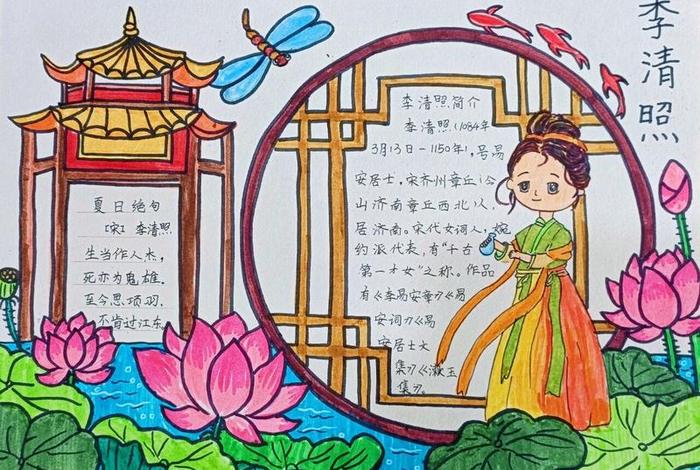 李清照
夏日绝句
[宋] 李清照
生当作人杰,
死亦为鬼雄。
至今思项羽,
不肯过江东。
李清照简介
李清照(1084年
3月13日-1150年),号易
安居士,宋齐州章丘(今
山济南章丘西北)人,
居济南。宋代女词人,婉
约派代表,有“千古
第一才女”之称。作品
有《李易安章》《易
安词》《易
安居士文
集》《漱玉
集》。